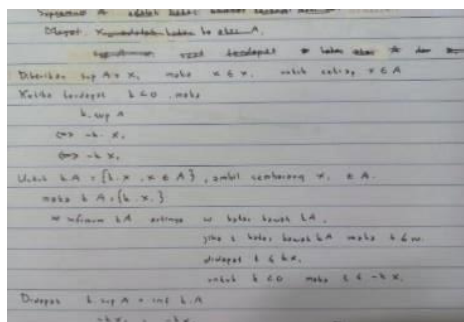 Supremum A adalah batas
Didapat x₁ adalah batas ke atas A.
terdapat batas atas dan
Diberikan sup A = x₁ maka x ≤ x₁ untuk setiap x ∈ A
Ketika terdapat k < 0, maka
k. sup A
⟺ -k x₁
⟺ -k x₁
Untuk kA = {k.x, x ∈ A}, ambil sembarang x₁ ∈ A.
maka k A = {k. x₁}
w infimum kA artinya w batas bawah kA.
jika t batas bawah kA maka t ≤ w.
didapat t ≤ kx₁
untuk k < 0 maka t ≤ -k x₁
Didapat k. sup A = inf k.A
-kx₁ = -kx